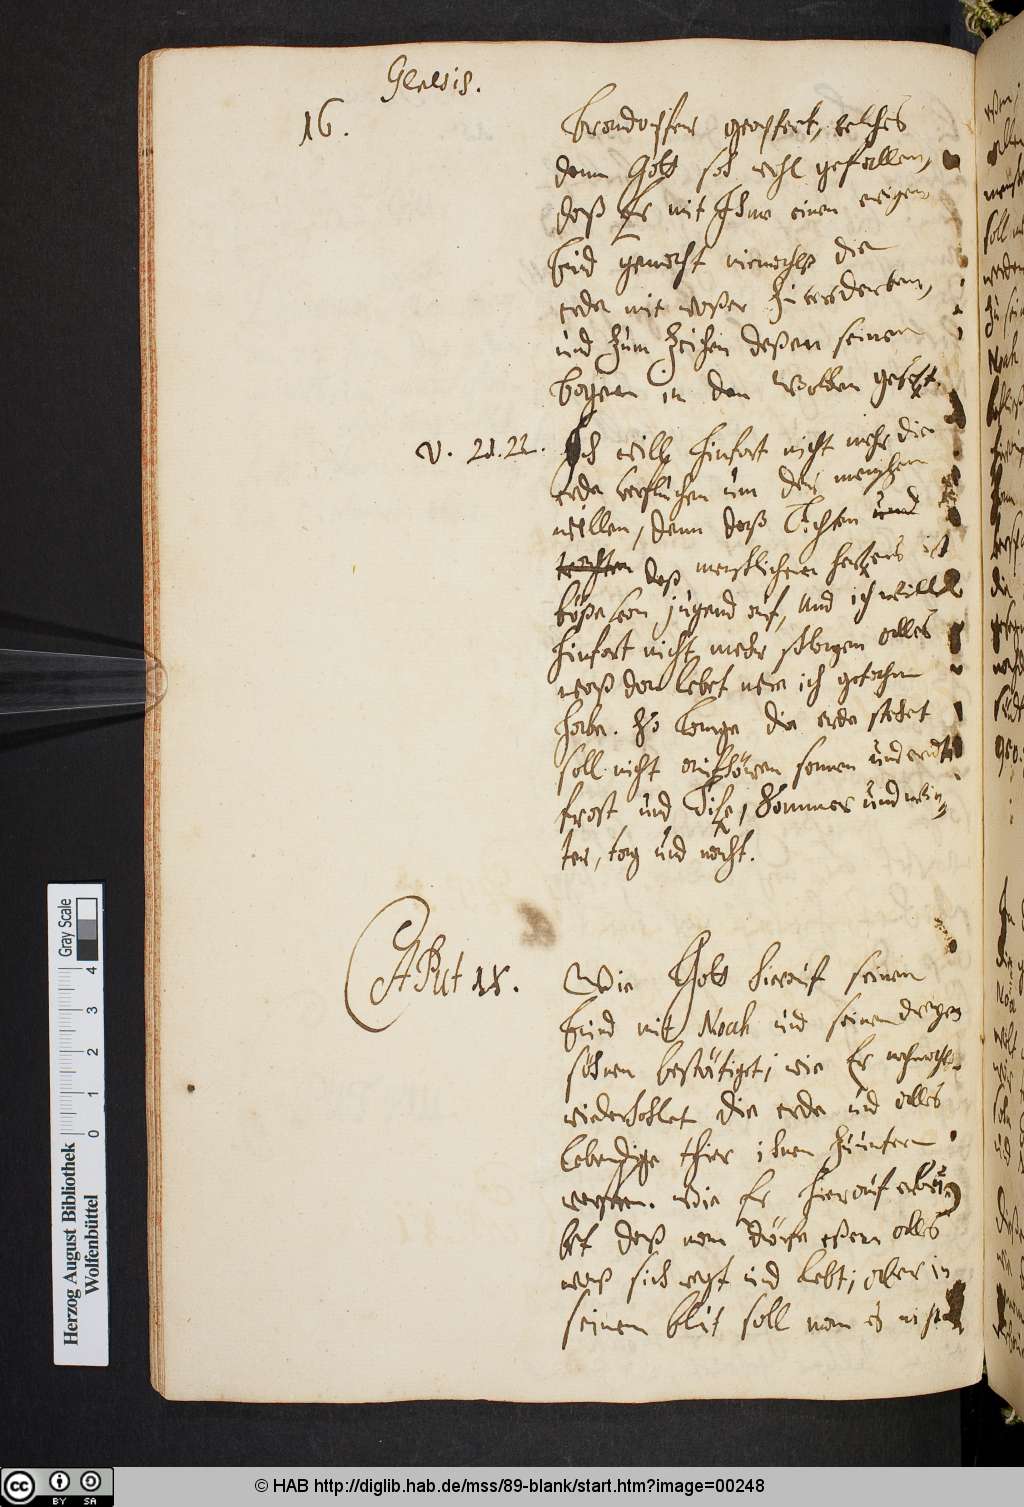 Genesis.
16.
brandopffer geopfert, welches
dann Gott so wohl gefallen,
daß Er mit Ihme einen ewigen
bund gemacht niemahlß die
erde mit waßer zu verderben,
und zum zeichen deßen seinen
bogen in den Wolken gesetzt.
V. 21. 22. Ich will hinfort nicht mehr die
erde verfluchen um der menschen
willen, denn daß Tichten und
trachten deß menschlichen hertzens ist
böße von jugend auf, und ich will
hinfort nicht mehr schlagen alles
waß da lebet wie ich gethan
habe. So lange die erde stehet
soll nicht aufhören samen und erndte
frost und hitze, Sommer und win-
ter, tag und nacht.
CAPut IX.
Wie Gott hierauf seinen
bund mit Noah und seinen dreyen
söhnen bestätiget; wie Er nochmahls
wiederhohlet die erde und alles
lebendige thier ihnen zu untern
werffen. Wie Er hierauf erlau-
bet daß man dörfe eßen alles
waß sich regt und lebt; aber in
seinem blut soll man es nicht
Herzog August Bibliothek
Wolfenbüttel
0 1 2 3 4
Gray Scale
© HAB http://diglib.hab.de/mss/89-blank/start.htm?image=00248
CC BY SA